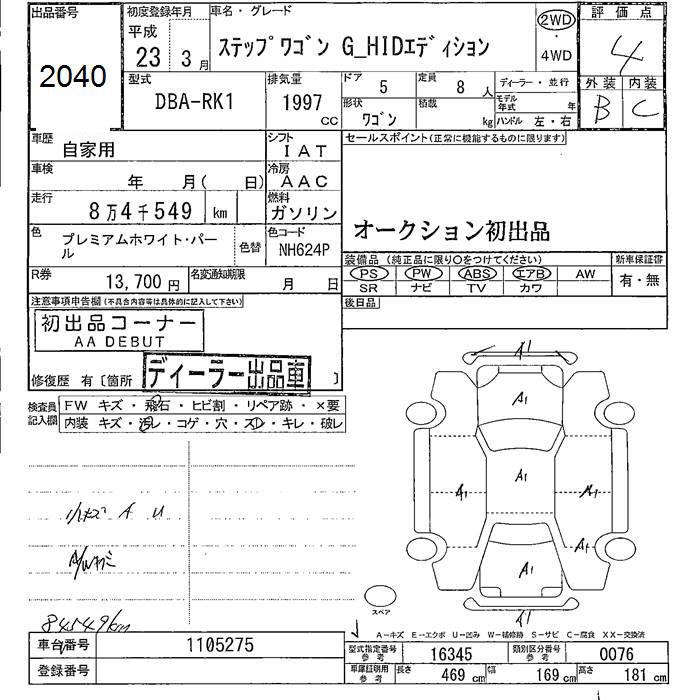 出品番号
2040
初度登録年月
平成
23 3 月
車名・グレード
ステップワゴン G_HIDエディション
2WD
・
4WD
評価点
4
外装 内装
B C
型式
DBA-RK1
排気量
1997
CC
ドア
5
定員
8 人
形状
ワゴン
積載
kg
ディーラー・並行
モデル年式 年
ハンドル 左・右
車歴
自家用
シフト
IAT
車検
年 月( 日)
冷房
AAC
走行
8万4千549 km
燃料
ガソリン
色
プレミアムホワイト・パール
色替
色コード
NH624P
R券
13,700 円
名変通知期限
月 日
セールスポイント(正常に機能するものに限ります)
オークション初出品
装備品(純正品に限り○をつけてください)
新車保証書
PS PW ABS エアB AW
SR ナビ TV カワ
有・無
後日品
注意事項申告欄(不具合内容等は具体的に記入して下さい)
初出品コーナー
AA DEBUT
ディーラー出品車
修復歴 有〔箇所 〕
検査員記入欄
FW キズ・飛石・ヒビ割・リペア跡・×要
内装 キズ・汚レ・コゲ・穴・スレ・キレ・破レ
A1
A1
A1
A1
A1
A1
A1
A1
小キズ A U
A/Wキズ
84549km
スペア
A－キズ E－エクボ U－凹み W－補修跡 S－サビ C－腐食 XX－交換済
車台番号
1105275
登録番号
型式指定番号
参考
16345
類別区分番号
参考
0076
車庫証明用
参考
長さ
469 cm
幅
169 cm
高さ
181 cm